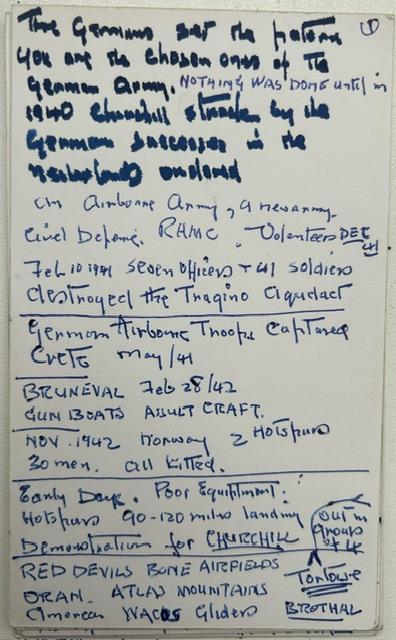 The Germans set the pattern ①
You are the chosen ones of the
German Army. NOTHING WAS DONE until in
1940 Churchill struck by the
German successes in the
ordered
an Airborne Army, a new army.
Civil Defence. RAMC. Volunteers DEC 41
Feb 10 1941 seven officers + 41 soldiers
destroyed the Tragino Aqueduct
German Airborne Troops Captured
Crete May/41
BRUNEVAL Feb 28/42
GUN BOATS ASULT CRAFT.
NOV. 1942 Norway 2 Hotspurs
30 men. all killed.
Early Days. Poor Equiptment.
Hotspurs 90-120 miles landing
out in
groups
of 4
Demonstration for CHURCHILL
RED DEVILS BONE AIRFIELDS
ORAN. ATLAS MOUNTAINS
American WACOS Gliders BROTHAL